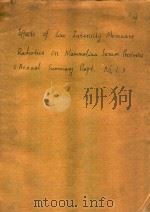 Effects of Low Intensity Microwave
Radiation on Mammalian Serum Proteins
(Annual Summary Rept. No. 1.)